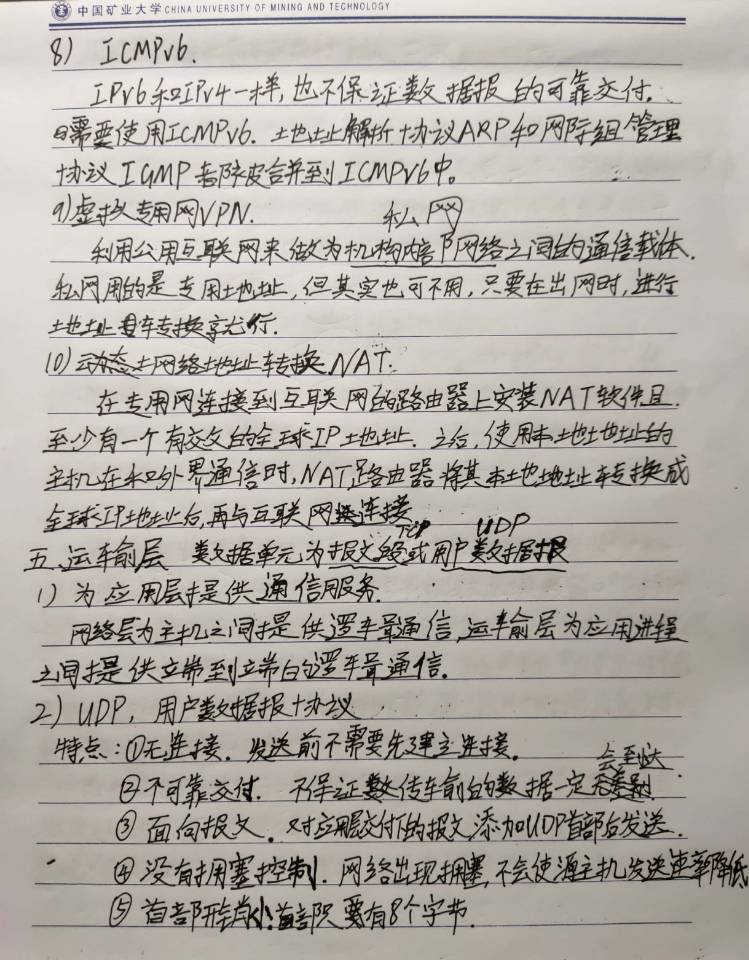 中国矿业大学 CHINA UNIVERSITY OF MINING AND TECHNOLOGY
8) ICMPv6.
IPv6和IPv4一样,也不保证数据报的可靠交付.
需要使用ICMPv6. 地址解析协议ARP和网际组管理
协议IGMP都被合并到ICMPv6中。
9)虚拟专用网VPN. 私网
利用公用互联网来做为机构内部网络之间的通信载体.
私网用的是专用地址,但其实也可不用,只要在出网时,进行
地址转换就行.
10)动态网络地址转换NAT.
在专用网连接到互联网的路由器上安装NAT软件且.
至少有一个有效的全球IP地址. 之后,使用本地地址的
主机在和外界通信时,NAT路由器将其本地地址转换成
全球IP地址后,再与互联网连接
TCP UDP
五.运输层 数据单元为报文段或用户数据报
1) 为应用层提供通信服务.
网络层为主机之间提供逻辑通信,运输层为应用进程
之间提供端到端的逻辑通信.
2) UDP, 用户数据报协议
特点:①无连接. 发送前不需要先建立连接.
会到达
②不可靠交付. 不保证传输的数据一定无差别
③ 面向报文. 对应用层交付下的报文,添加UDP首部后发送.
④ 没有拥塞控制. 网络出现拥塞,不会使源主机发送速率降低
⑤ 首部开销小!首部只要有8个字节.